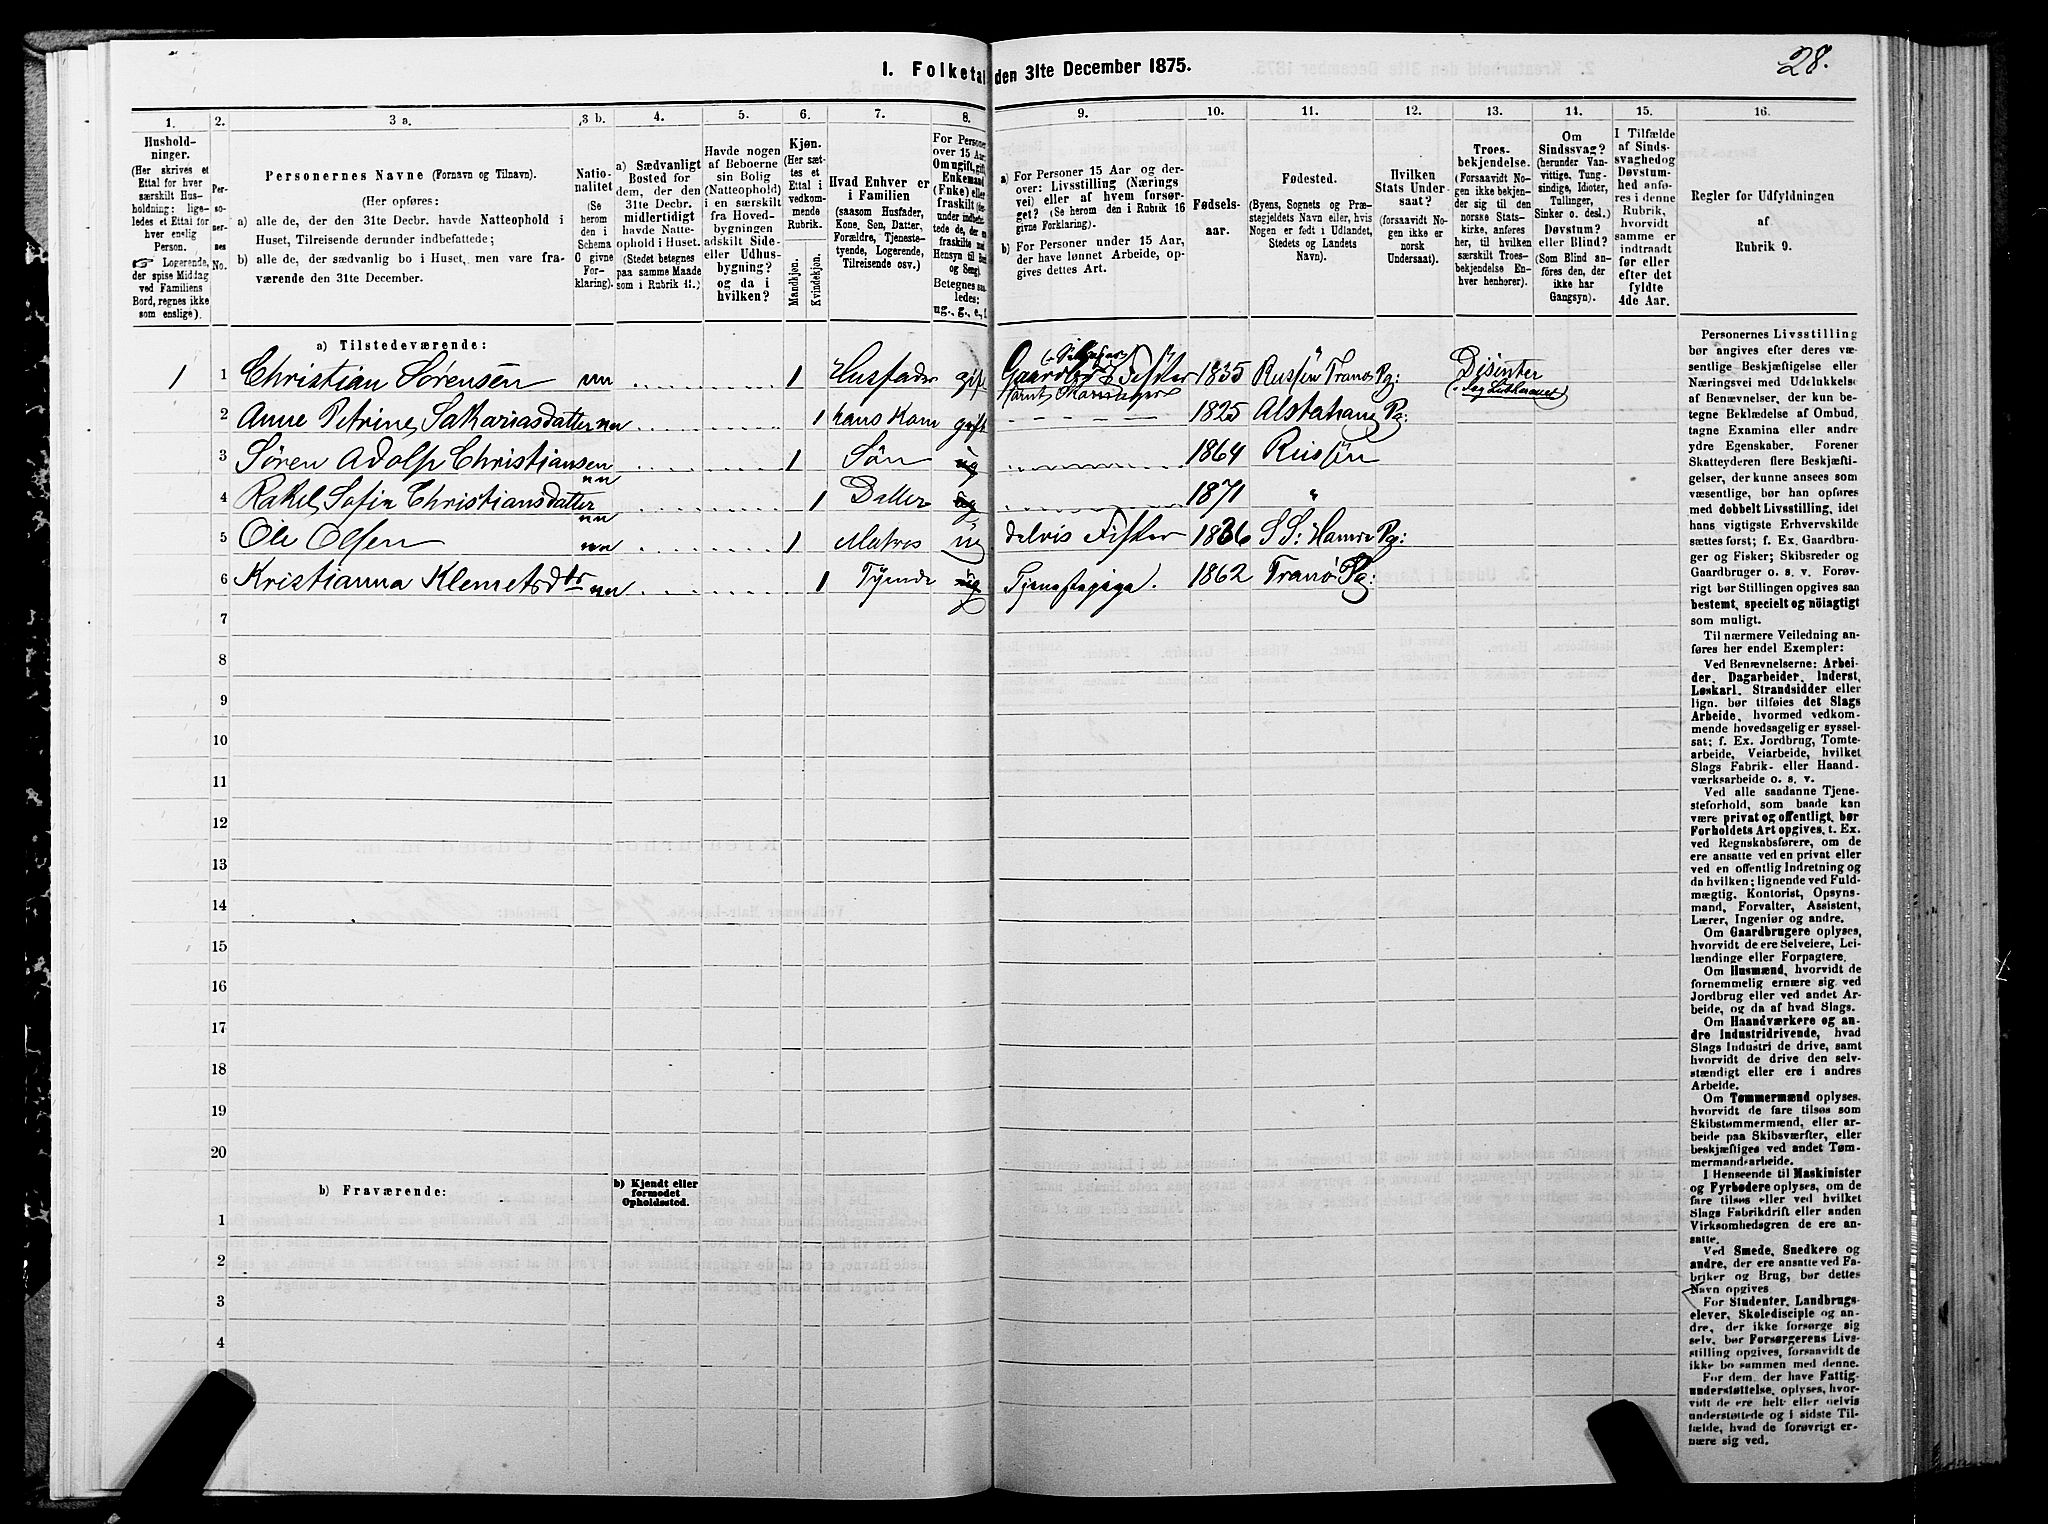 28.
I. Folketal den 31te December 1875.
1. 2. 3 a. 3 b. 4. 5. 6. 7. 8. 9. 10. 11. 12. 13. 14. 15. 16.
Hushold-
ninger.
(Her skrives et
Ettal for hver
særskilt Hus-
holdning; lige-
ledes et Ettal for
hver enslig
Person.
☞ Logerende,
der spise Middag
ved Familiens
Bord, regnes ikke
som enslige).
Per-
so-
ner-
nes
No.
Personernes Navne (Fornavn og Tilnavn).
(Her opføres:
a) alle de, der den 31te Decbr. havde Natteophold i
Huset, Tilreisende derunder indbefattede;
b) alle de, der sædvanlig bo i Huset, men vare fra-
værende den 31te December.
Natio-
nalitet
(Se
herom
den i
Schema
C givne
For-
klaring).
a) Sædvanligt
Bosted for
dem, der den
31te Decbr.
midlertidigt
havde Natte-
ophold i Huset.
(Stedet betegnes
paa samme Maade
som i Rubrik 11.)
Havde nogen
af Beboerne
sin Bolig
(Natteophold)
i en særskilt
fra Hoved-
bygningen
adskilt Side-
eller Udhus-
bygning?
og da i
hvilken?
Kjøn.
(Her sæt-
tes et
Ettal i
vedkom-
mende
Rubrik.
Mandkjøn.
Kvindekjøn.
Hvad Enhver er
i Familien
(saasom Husfader,
Kone, Søn, Datter,
Forældre, Tjeneste-
tyende, Logerende,
Tilreisende osv.)
For Personer
over 15 Aar:
Om ugift, gift,
Enkemand
(Fnke) eller
fraskilt (der-
under indbefat-
tede de, der ere
fraskilte med
Hensyn til Bord
og Seng).
Betegnes saa-
ledes:
ug., g., e., f.
a) For Personer 15 Aar og der-
over: Livsstilling (Nærings
vei) eller af hvem forsør-
get? (Se herom den i Rubrik 16
givne Forklaring).
b) For Personer under 15 Aar,
der have lønnet Arbeide, op-
gives dettes Art.
Fødsels-
aar.
Fødested.
(Byens, Sognets og Præ-
stegjeldets Navn eller, hvis
Nogen er født i Udlandet,
Stedets og Landets
Navn).
Hvilken
Stats Under-
saat?
(forsaavidt No-
gen ikke er
norsk
Undersaat).
Troes-
bekjendelse.
(Forsaavidt No-
gen ikke bekjen-
der sig til den
norske Stats-
kirke, anføres
her, til hvilken
særskilt Troes-
bekjendelse En-
hver henhører).
Om
Sindssvag?
(herunder Van-
vittige, Tung-
sindige, Idioter,
Tullinger,
Sinker o. desl.)
Døvstum?
eller Blind?
(Som Blind an-
føres den, der
ikke har
Gangsyn).
I Tilfælde
af Sinds-
svaghed og
Døvstum-
hed anfø-
res i denne
Rubrik,
hvorvidt
samme er
indtraadt
før eller
efter det
fyldte
4de Aar.
Regler for Udfyldningen
af
Rubrik 9.
a) Tilstedeværende:
1 1 Christian Sørensen nn 1 Husfader gift Fisker 1835 Russøn Tranø Pg: Disinter
2 Anne Petrine Sakariasdatter nn 1 hans Kone gift 1825 Alstahaug Pg:
3 Søren Adolf Christiansen nn 1 Søn ug 1864 Russøn
4 Rakel Sofie Christiansdatter nn 1 Datter ug 1871 "
5 Ole Olsen nn 1 Matros ug delvis Fisker 1836 Hamre Pg:
6 Kristianna Klemetsdtr nn 1 Tyende ug Tjenestepige. 1862 Tranø Pg:
7
8
9
10
11
12
13
14
15
16
17
18
19
20
b) Fraværende:
b) Kjendt eller
formodet
Opholdssted.
1
2
3
4
Personernes Livsstilling
bør angives efter deres væ-
sentlige Beskjæftigelse eller
Næringsvei med Udelukkelse
af Benævnelser, der kun be-
tegne Beklædelse af Ombud,
tagne Examina eller andre
ydre Egenskaber. Forener
Skatteyderen flere Beskjæfti-
gelser, der kunne ansees som
væsentlige, bør han opføres
med dobbelt Livsstilling, idet
hans vigtigste Erhvervskilde
sættes først; f. Ex. Gaardbru-
ger og Fisker; Skibsreder og
Gaardbruger o. s. v. Forøv-
rigt bør Stillingen opgives saa
bestemt, specielt og nøiagtigt
som muligt.
Til nærmere Veiledning an-
føres her endel Exempler:
Ved Benævnelserne: Arbei-
der, Dagarbeider, Inderst,
Løskarl, Strandsidder eller
lign. bør tilføies det Slags
Arbeide, hvormed vedkom-
mende hovedsagelig er syssel-
sat; f. Ex. Jordbrug, Tomte-
arbeide, Veiarbeide, hvilket
Slags Fabrik- eller Haand-
værksarbeide o. s. v.
Ved alle saadanne Tjene-
steforhold, som baade kan
være privat og offentligt, bør
Forholdets Art opgives, t. Ex.
ved Regnskabsførere, om de
ere ansatte ved en privat eller
ved en offentlig Indretning og
da hvilken; lignende ved Fuld-
mægtig, Kontorist, Opsyns-
mand, Forvalter, Assistent,
Lærer, Ingeniør og andre.
Om Gaardbrugere oplyses,
hvorvidt de ere Selveiere, Lei-
lændinge eller Forpagtere.
Om Husmænd, hvorvidt de
fornemmelig ernære sig ved
Jordbrug eller ved andet Ar-
beide, og da af hvad Slags.
Om Haandværkere og an-
dre Industridrivende, hvad
Slags Industri de drive, samt
hvorvidt de drive den selv-
stændigt eller ere i andres
Arbeide.
Om Tømmermænd oplyses,
hvorvidt de fare tilsøs som
Skibstømmermænd, eller ar-
beide paa Skibsværfter, eller
beskjæftiges ved andet Tøm-
mermandsarbeide.
I Henseende til Maskinister
og Fyrbødere oplyses, om de
fare tilsøs eller ved hvilket
Slags Fabrikdrift eller anden
Virksomhedsgren de ere an-
satte.
Ved Smede, Snedkere og
andre, der ere ansatte ved Fa-
briker og Brug, bør dettes
Navn opgives
For Studenter, Landbrugs-
elever, Skoledisciple og an-
dre, der ikke forsørge sig
selv, bør Forsørgerens Livs-
stilling opgives, forsaavidt de
ikke bo sammen med denne.
For dem, der have Fattig-
understøttelse, oplyses, hvor-
vidt de ere helt eller delvis
understøttede og i sidste Til-
fælde, hvad de forøvrigt er-
nære sig ved.